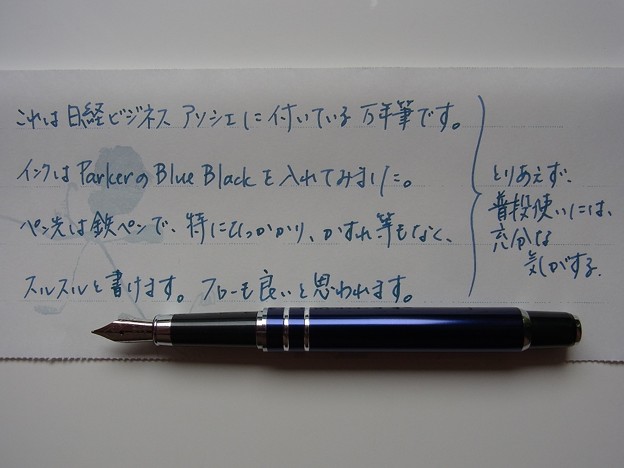 これは日経ビジネス アソシエに付いている万年筆です。
インクはParkerのBlue Blackを入れてみました。
ペン先は鉄ペンで、特にひっかかり、かすれ等もなく、
スルスルと書けます。フローも良いと思われます。
とりあえず、
普段使いには、
充分な
気がする。